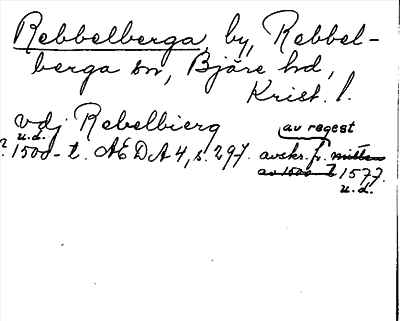 Rebbelberga, by, Rebbel-
berga sn, Bjäre hd,
Krist. l.
vdj Rebelbierg
u.d. av regest
? 1500-t. ÆDA 4, s. 297. avskr. fr. mitten
av 1500-t 1577.
u.d.